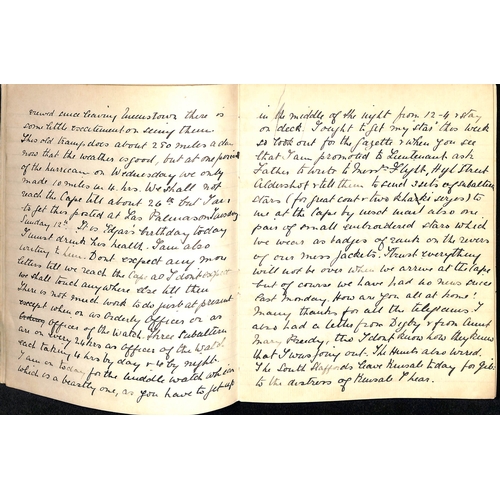 since leaving Queenstown there is
some little excitement on seeing them.
This old tramp does about 250 miles a day
now that the weather is good, but at one period
of the hurricane on Wednesday we only
made 10 miles in 4 hrs. We shall not
reach the Cape till about 24th but I am
to get this posted at Las Palmas on Tuesday
Sunday 12th. It is Edgar's birthday today
I must drink his health. I am also
writing to him. Dont expect any more
letters till we reach the Cape as I dont expect
we shall touch anywhere else till then
There is not much work to do just at present
except when on as Orderly Officers or as
Officer of the Watch. Three Subaltern
are on every 24 hrs as Officers of the Watch
each taking 4 hrs by day & 4 by night.
I am on today for the middle watch which
which is a beastly one, as you have to get up
in the middle of the night from 12-4 & stay
on deck. I ought to get my star this week
so look out for the Gazette & when you see
that I am promoted to Lieutenant ask
Father to write to Messrs Flyth, High Street
Aldershot & tell them to send 3 sets of
stars (for great coat & two khaki serges) to
me at the Cape by next mail also one
pair of small embroidered stars which
we wear as badges of rank on the revers
of our mess jackets. I trust everything
will not be over when we arrive at the Cape
but of course we have had no news since
last Monday. How are you all at home?
Many thanks for all the telegrams. I
also had a letter from Digby & from Aunt
Mary, tho' I dont know how they knew
that I was going out. The Hunts also wired.
The South Staffords leave Kinsale today for Gib:
to the distress of Kinsale I hear.